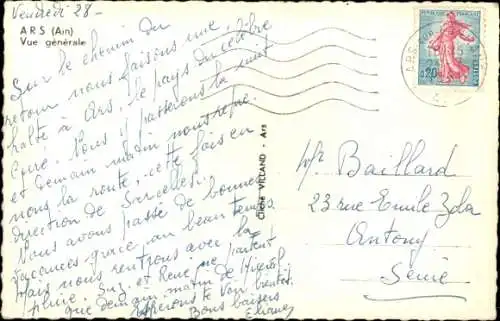 Vendredi 28-
ARS (Ain)
Vue générale
Sur le chemin du
retour nous faisons une
halte à Ars, le pays du célèbre
Curé. Nous y passerons la nuit
et demain matin nous repre
nons la route, cette fois en
direction de Sarcelles.
Nous avons passé de bonnes
vacances grâce au beau temps
Mais nous rentrons avec la
pluie. Suz. et René ne partent
que demain matin de
Espérons te voir bientôt
Bons baisers
Eliane
Cliché VILLAND - Ars
RÉPUBLIQUE FRANÇAISE
0,20
ARS
Baillard
23 rue Emile Zola
Antony
Seine